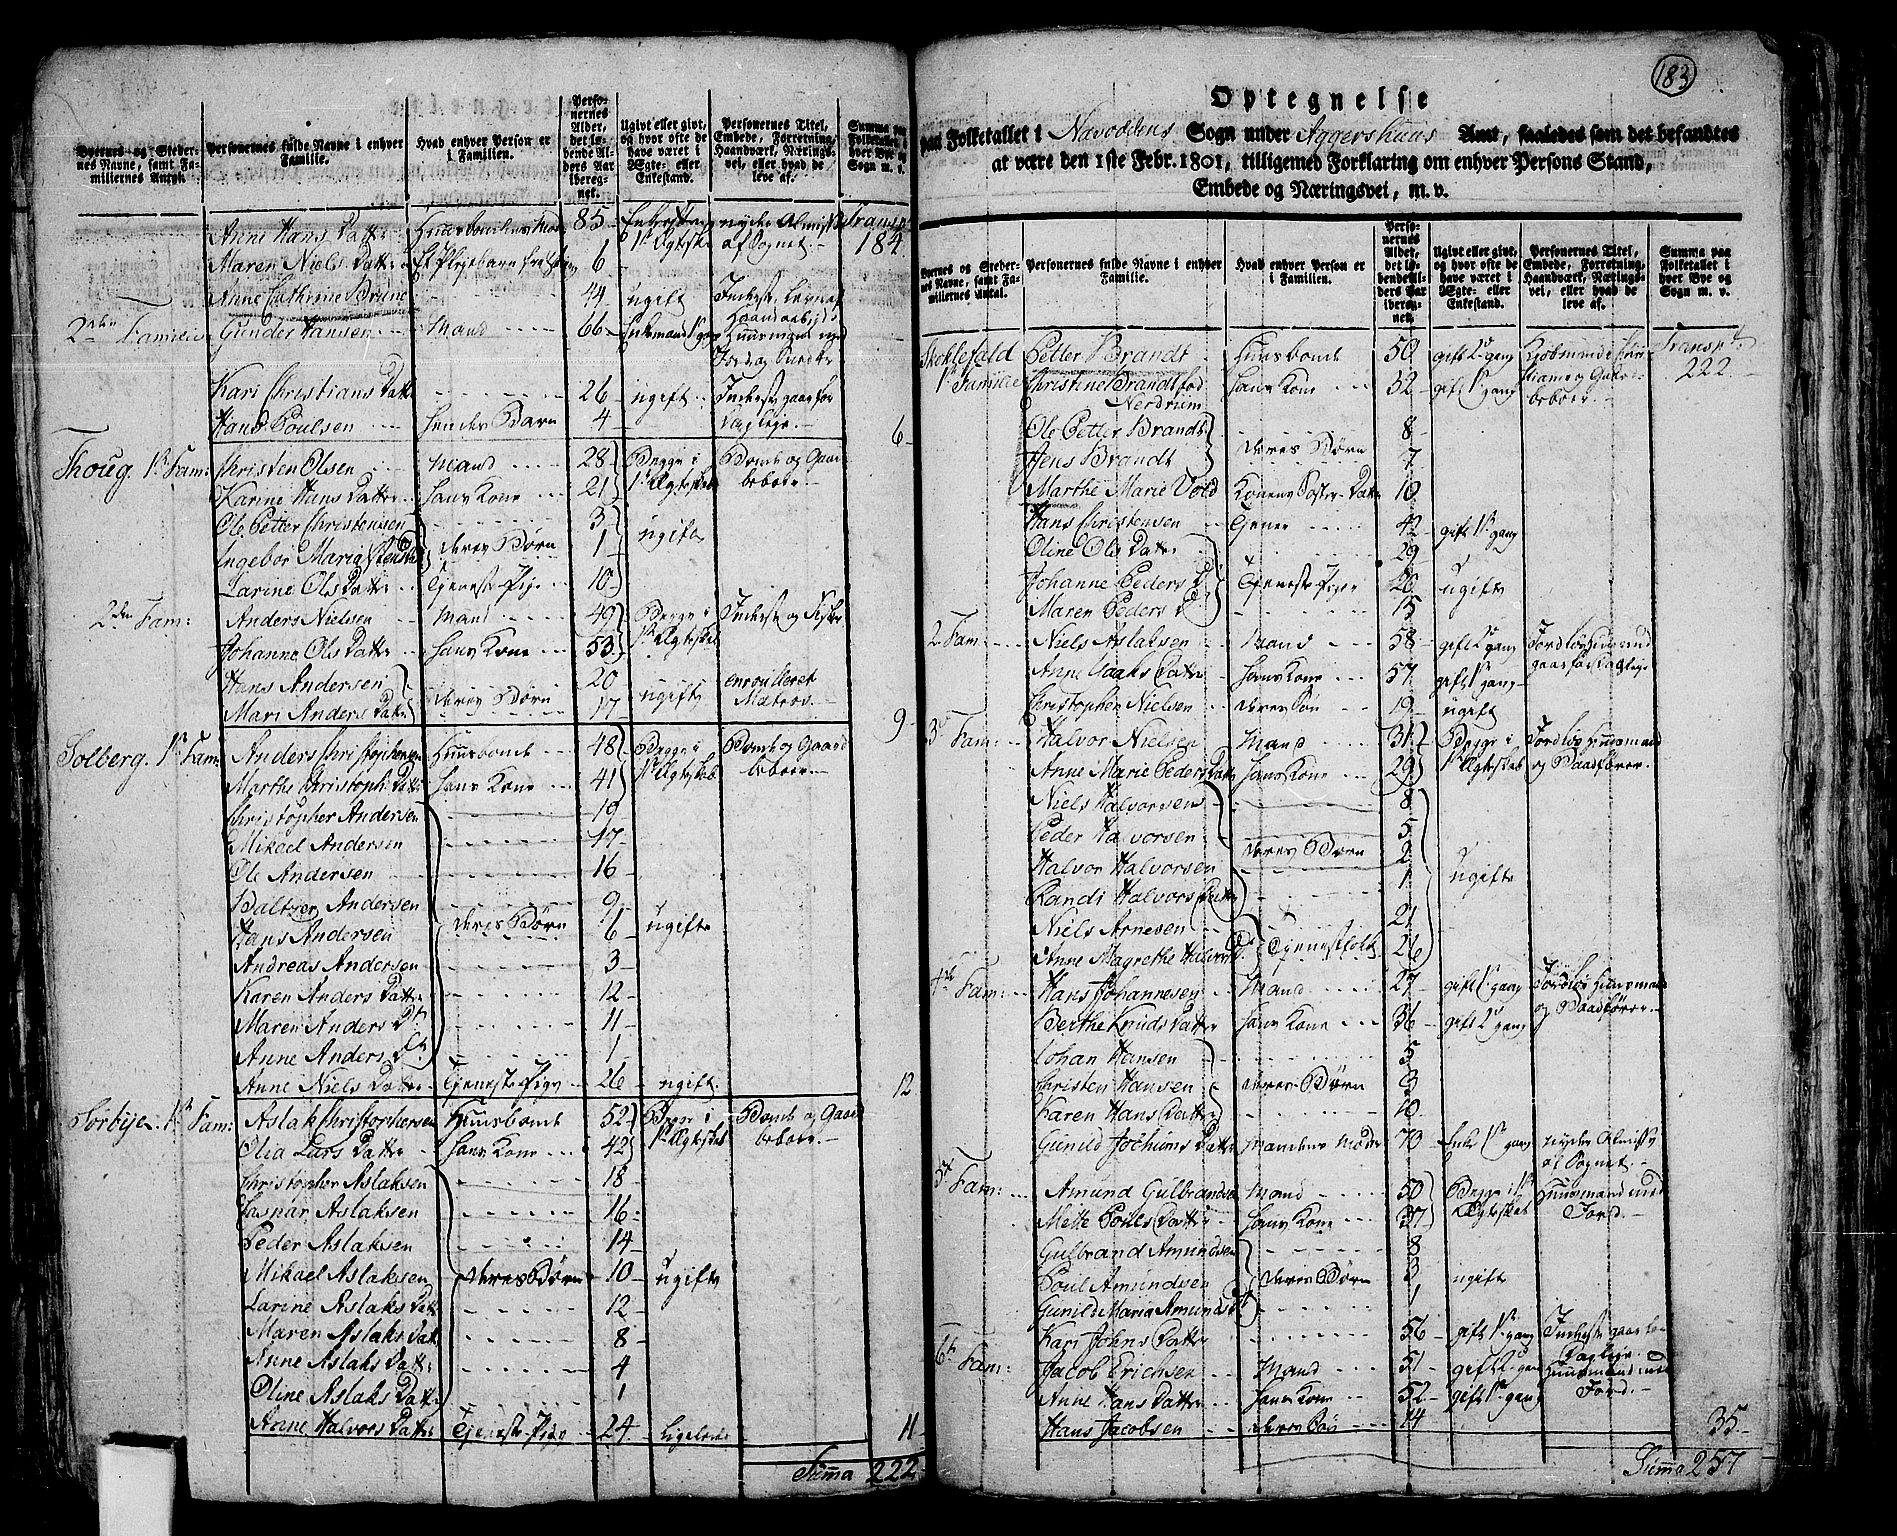 Byernes og Steder-
nes Navne, samt Fa-
miliernes Antal.
Personernes fulde Navne i enhver
Familie.
Hvad enhver Person er
i Familien.
Perso-
nernes
Alder,
det lø-
bende Al-
ders Aar
ibereg-
net.
Ugivt eller givt,
og hvor ofte de
have været i
Egte- eller
Enkestand.
Personernes Titel,
Embede, Forretning,
Haandværk, Nærings-
vei, eller hvad de
leve af.
Summa paa
Folketallet i
hver Bye og
Sogn m. v.
Anne Hans Datter Huusbondens Moder 85 nyder Almisse Transp
af Sognet 184
Maren Niels Datter Et Plejebarn 6
Anne Cathrine Brune 44 ugift Inderste
2den Familie Gunder Hansen Mand 66
Kari Christians Datter 26 ugift Inderste gaar for
Hans Poulsen hendes Barn 4 Dagleje 6
Thoug. 1ste Fam: Christen Olsen Mand 28 Begge i Bonde og Gaard
Karine Hans Datter hans Kone 21 1ste Ægteskab beboer
Ole Petter Christensen 3
Ingebor Maria deres Børn 1 ugifte
Larine Ols Datter Tjeneste-Pige 10
2den Fam: Anders Nielsen Mand 49 Begge i Inderste og Fisker
Johanne Ols Datter hans Kone 53 1ste Ægteskab
Hans Andersen 20 enrolleret
Mari Anders Datter deres Børn 17 ugifte Matros 9
Solberg. 1ste Fam: Anders Christophersen Huusbonde 48 Begge i Bonde og Gaard
Marthe Christoph. Datter hans Kone 41 1ste Ægteskab beboer
Christopher Andersen 19
Mikael Andersen 17
Ole Andersen 16
Baltzer Andersen 9
Hans Andersen deres Børn 6 ugifte
Andreas Andersen 3
Karen Anders Datter 12
Maren Anders D 11
Anne Anders D 1
Anne Niels Datter Tjeneste-Pige 26 ugift 12
1ste Fam: Aslak Christophersen Huusbonde 52 Begge i Bonde og Gaard
Olia Lars Datter hans Kone 42 1ste Ægteskab beboer
Christopher Aslaksen 18
Casper Aslaksen 16
Peder Aslaksen 14
Mikael Aslaksen deres Børn 10 ugifte
Larine Aslaks Datter 12
Maren Aslaks Datter 8
Anne Aslaks Datter 4
Oline Aslaks Datter 1
Anne Halvors Datter Tjeneste-Pige 24 Ligeledes 11
Summa 222
183
Optegnelse
paa Folketallet i Næsoddens Sogn under Aggershuus Amt, saaledes som det befandtes
at være den 1ste Febr. 1801, tilligemed Forklaring om enhver Persons Stand,
Embede og Næringsvei, m. v.
Byernes og Steder-
nes Navne, samt Fa-
miliernes Antal.
Personernes fulde Navne i enhver
Familie.
Hvad enhver Person er
i Familien.
Perso-
nernes
Alder,
det lø-
bende Al-
ders Aar
ibereg-
net.
Ugivt eller givt,
og hvor ofte de
have været i
Egte- eller
Enkestand.
Personernes Titel,
Embede, Forretning,
Haandværk, Nærings-
vei, eller hvad de
leve af.
Summa paa
Folketallet i
hver Bye og
Sogn m. v.
Petter Brandt Huusbonde 50 gift 2 gang Transpt
1ste Familie Christine Brandt fød hans Kone 32 gift 1ste gang beboer 222
Nerdrum
Ole Petter Brandt 8
Jens Brandt deres Børn 7
Marthe Marie Vold Konens Søster-Datter 10
Hans Christensen Tjener 42 gift 1ste gang
Oline Ols Datter 29
Johanne Peders D Tjeneste-Piger 20 ugifte
Maren Peders D 15
2 Fam: Niels Aslaksen Mand 58 gift 2 gang Jordløs Huusmand
Anne Isaks Datter hans Kone 57 gift 1ste gang gaar for Dagleje
Christopher Nielsen deres Søn 19 ugift
3de Fam: Halvor Nielsen Mand 31 Begge i Jordløs Huusmand
Anne Marie Peders Datter hans Kone 29 1ste Ægteskab og Baadfører
Niels Halvorsen 8
Peder Halvorsen 5
Halvor Halvorsen deres Børn 2 ugifte
Randi Halvors Datter 1
Niels Arnesen 21
Anne Magrethe Halvors D Tjenestefolk 26
4de Fam: Hans Johannesen Mand 27 gift 1ste gang Jordløs Huusmand
Berthe Knuds Datter hans Kone 36 gift 2 gang og Baadfører
Johan Hansen 5
Christen Hansen deres Børn 3
Karen Hans Datter 10
Gunild Jochums Datter Mandens Moder 70 Enke 1ste gang nyder Almisse
af Sognet
5te Fam: Amund Gulbrandsen Mand 50 Begge i 1ste Huusmand med
Mette Pouls Datter hans Kone 37 Ægteskab Jord
Gulbrand Amundsen 8
Poul Amundsen deres Børn 3 ugift
Gunild Maria Amunds D 1
Kari Johns Datter 56 gift 1ste gang Inderste gaar for
Dagleje
6te Fam: Jacob Erichsen Mand 51 gift 2 gang Huusmand med
Anne Hans Datter hans Kone 52 gift 1ste gang Jord
Hans Jacobsen deres Søn 14 35
Summa 257